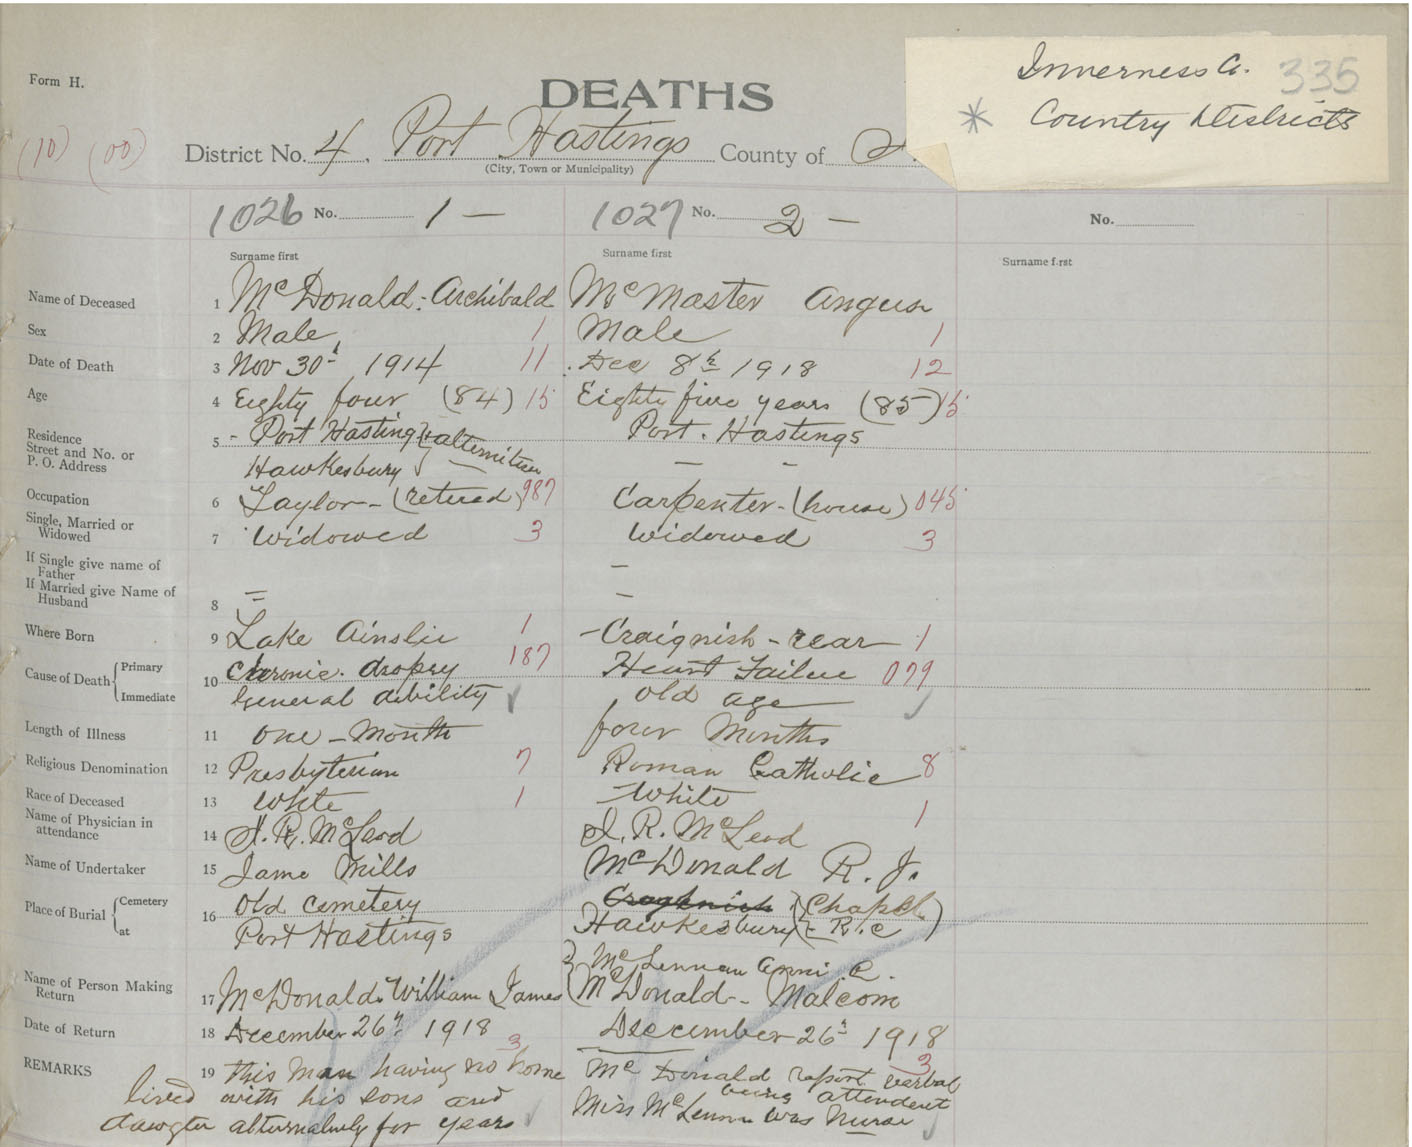 Form H.
DEATHS
Inverness Co. 335
* Country Districts
(10) (00)
District No. 4. Port Hastings County of
(City, Town or Municipality)
1026 No. 1 —
1027 No. 2 —
No.
Surname first
Surname first
Surname first
Name of Deceased 1 McDonald - Archibald McMaster Angus
Sex 2 Male 1 Male 1
Date of Death 3 Nov 30th 1914 11 Dec 8th 1918 12
Age 4 Eighty four (84) 15 Eighty five years (85) 15
Residence
Street and No. or
P. O. Address
5 - Port Hastings & alternitive Port. Hastings
Hawkesbury — - -
Occupation 6 Taylor - (retired) 987 Carpenter - (house) 045
Single, Married or
Widowed
7 Widowed 3 Widowed 3
If Single give name of
Father
If Married give Name of
Husband
8 = - -
Where Born 9 Lake Ainslie 1 - Craignish - rear 1
Cause of Death { Primary
Immediate
10 Chronic. dropsy 187 Heart Failure 079
General debility ✓ old age ✓
Length of Illness 11 one - Month four Months
Religious Denomination 12 Presbyterian 7 Roman Catholic 8
Race of Deceased 13 White 1 White 1
Name of Physician in
attendance
14 I. R. McLeod I. R. McLeod
Name of Undertaker 15 Jame Mills McDonald R. J.
Place of Burial { Cemetery
at
16 Old cemetery Craghnish (Chapel
Port Hastings Hawkesbury - R.C)
Name of Person Making
Return
McLennan Anni C.
17 McDonald William James McDonald - Malcom
Date of Return 18 December 26th 1918 December 26th 1918
3 3
REMARKS 19 this Man having no home
lived with his sons and
dawgter alternately for years
McDonald report verbal
being attendent
Miss McLennan was Nurse